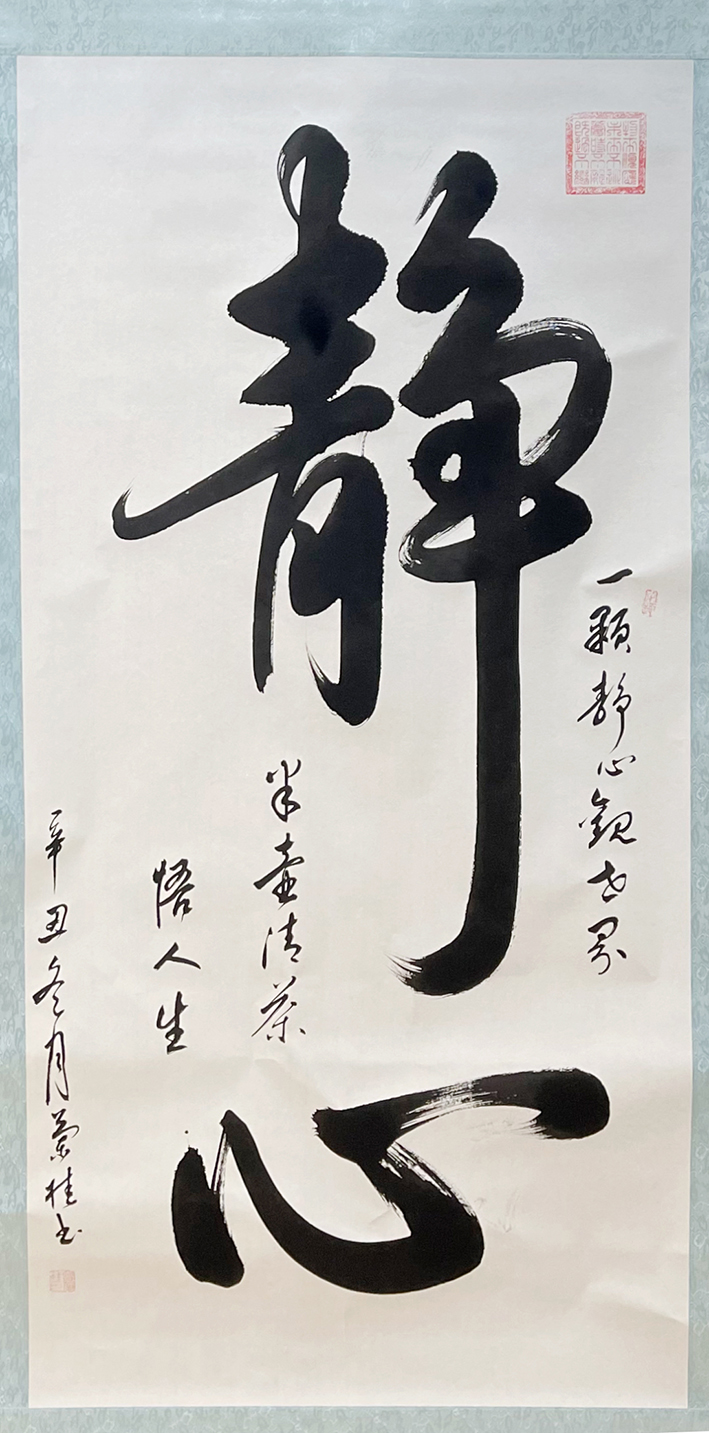 静心
一颗静心观世界
半壶清茶
悟人生
辛丑冬月兰桂书